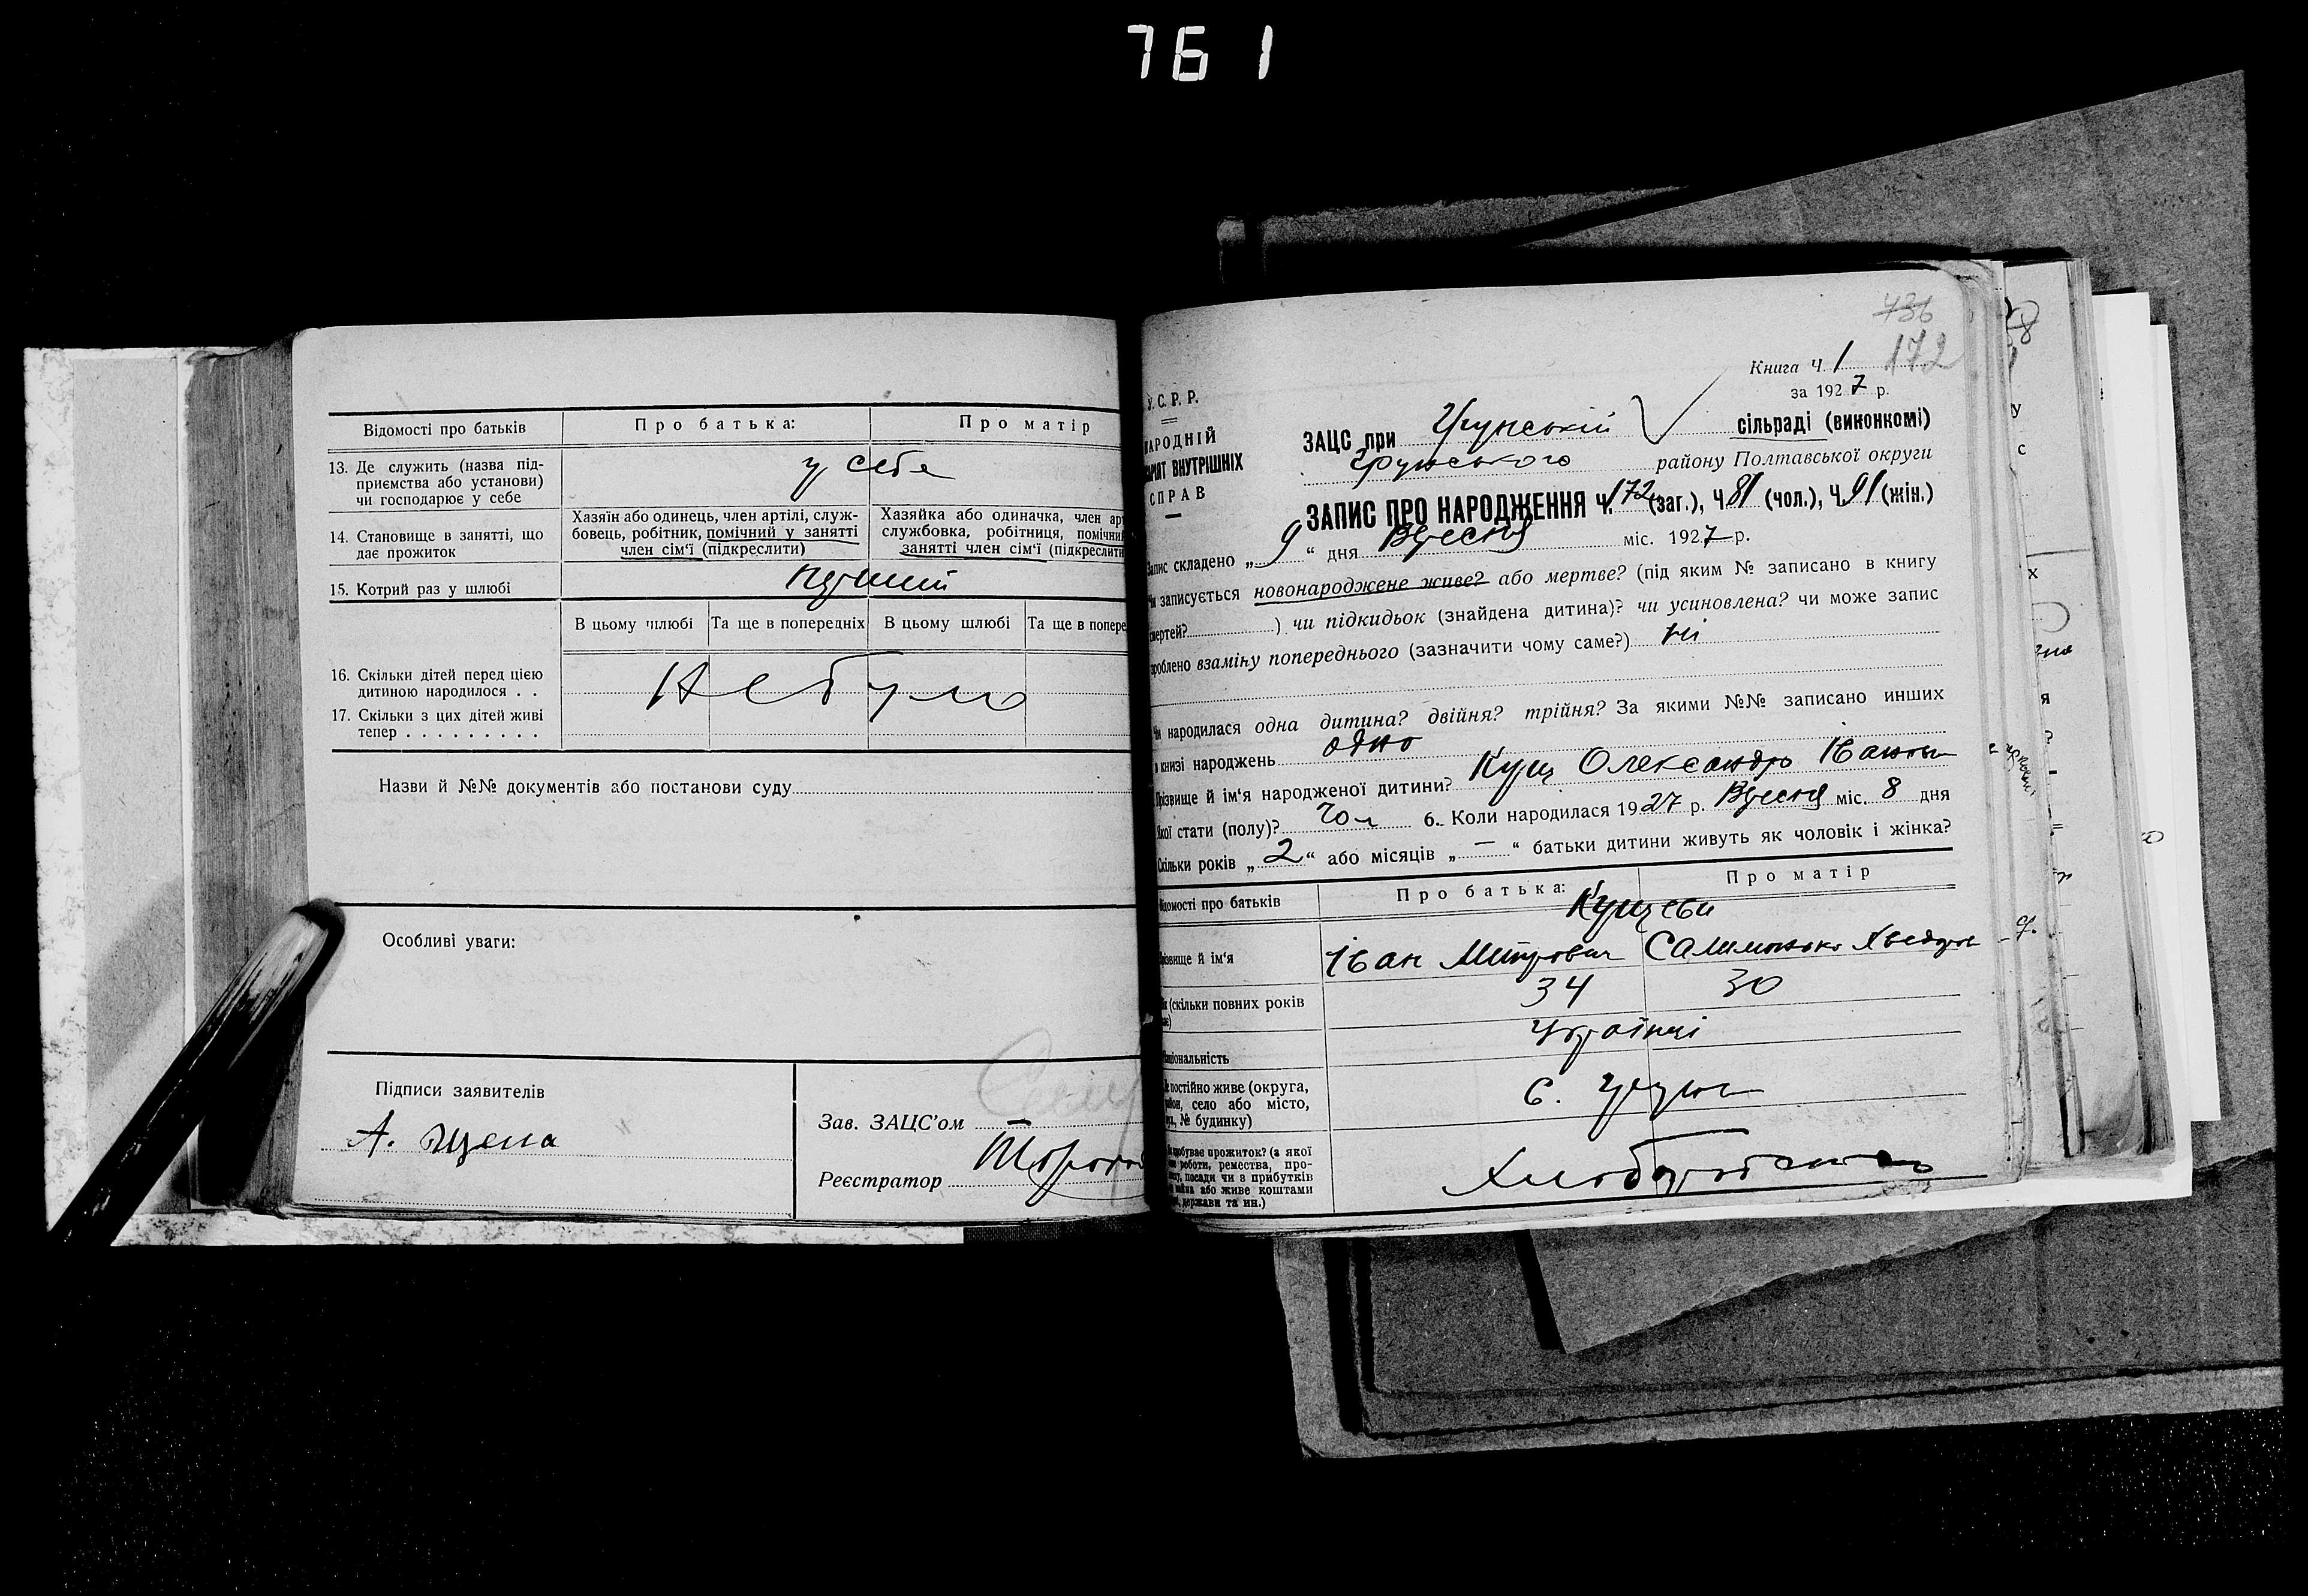 761
Відомості про батьків
Про батька:
Про матір
13. Де служить (назва під-
приємства або установи)
чи господарює у себе
у себе
14. Становище в занятті, що
дає прожиток
Хазяїн або одинець, член артілі, служ-
бовець, робітник, помічний у занятті
член сім'ї (підкреслити)
Хазяйка або одиначка, член
службовка, робітниця,
занятті член сім'ї
15. Котрий раз у шлюбі
перший
В цьому шлюбі
Та ще в попередніх
В цьому шлюбі
Та ще в
16. Скільки дітей перед цією
дитиною народилося . .
17. Скільки з цих дітей живі
тепер . . . . . . . . .
Не було
Назви й №№ документів або постанови суду
Особливі уваги:
Підписи заявителів
А.
Зав. ЗАЦС'ом
Реєстратор
736
172
Книга Ч. 1
за 1927 р.
У.С.Р.Р.
ВНУТРІШНІХ
СПРАВ
ЗАЦС при сільраді (виконкомі)
району Полтавської округи
ЗАПИС ПРО НАРОДЖЕННЯ Ч. 172 (заг.), Ч. 81 (чол.), Ч. 91 (жін.)
складено „9“ дня Вересня міс. 1927 р.
записується новонароджене живе? або мертве? (під яким № записано в книгу
) чи підкидьок (знайдена дитина)? чи усиновлена? чи може запис
взаміну попереднього (зазначити чому саме?) ні
народилася одна дитина? двійня? трійня? За якими №№ записано инших
книзі народжень одно
й ім'я народженої дитини? Кущ Олександр
стати (полу)? Чол 6. Коли народилася 1927 р. Вересня міс. 8 дня
років „2“ або місяців „—“ батьки дитини живуть як чоловік і жінка?
про батьків
Про батька:
Про матір
Кущеви
й ім'я
Іван Митрович
(скільки повних років
34
30
Українці
постійно живе (округа,
село або місто,
№ будинку)
с.
прожиток? (з якої
роботи, ремества, про-
посади чи з прибутків
або живе коштами
держави та ин.)
Хліборобство